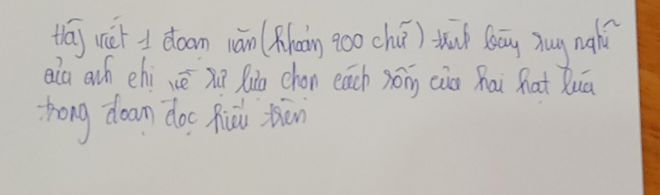 Hãy viết 1 đoạn văn (khoảng 200 chữ) trình bày suy nghĩ
của anh chị về sự lựa chọn cách sống của hai hạt lúa
trong đoạn đọc hiểu trên